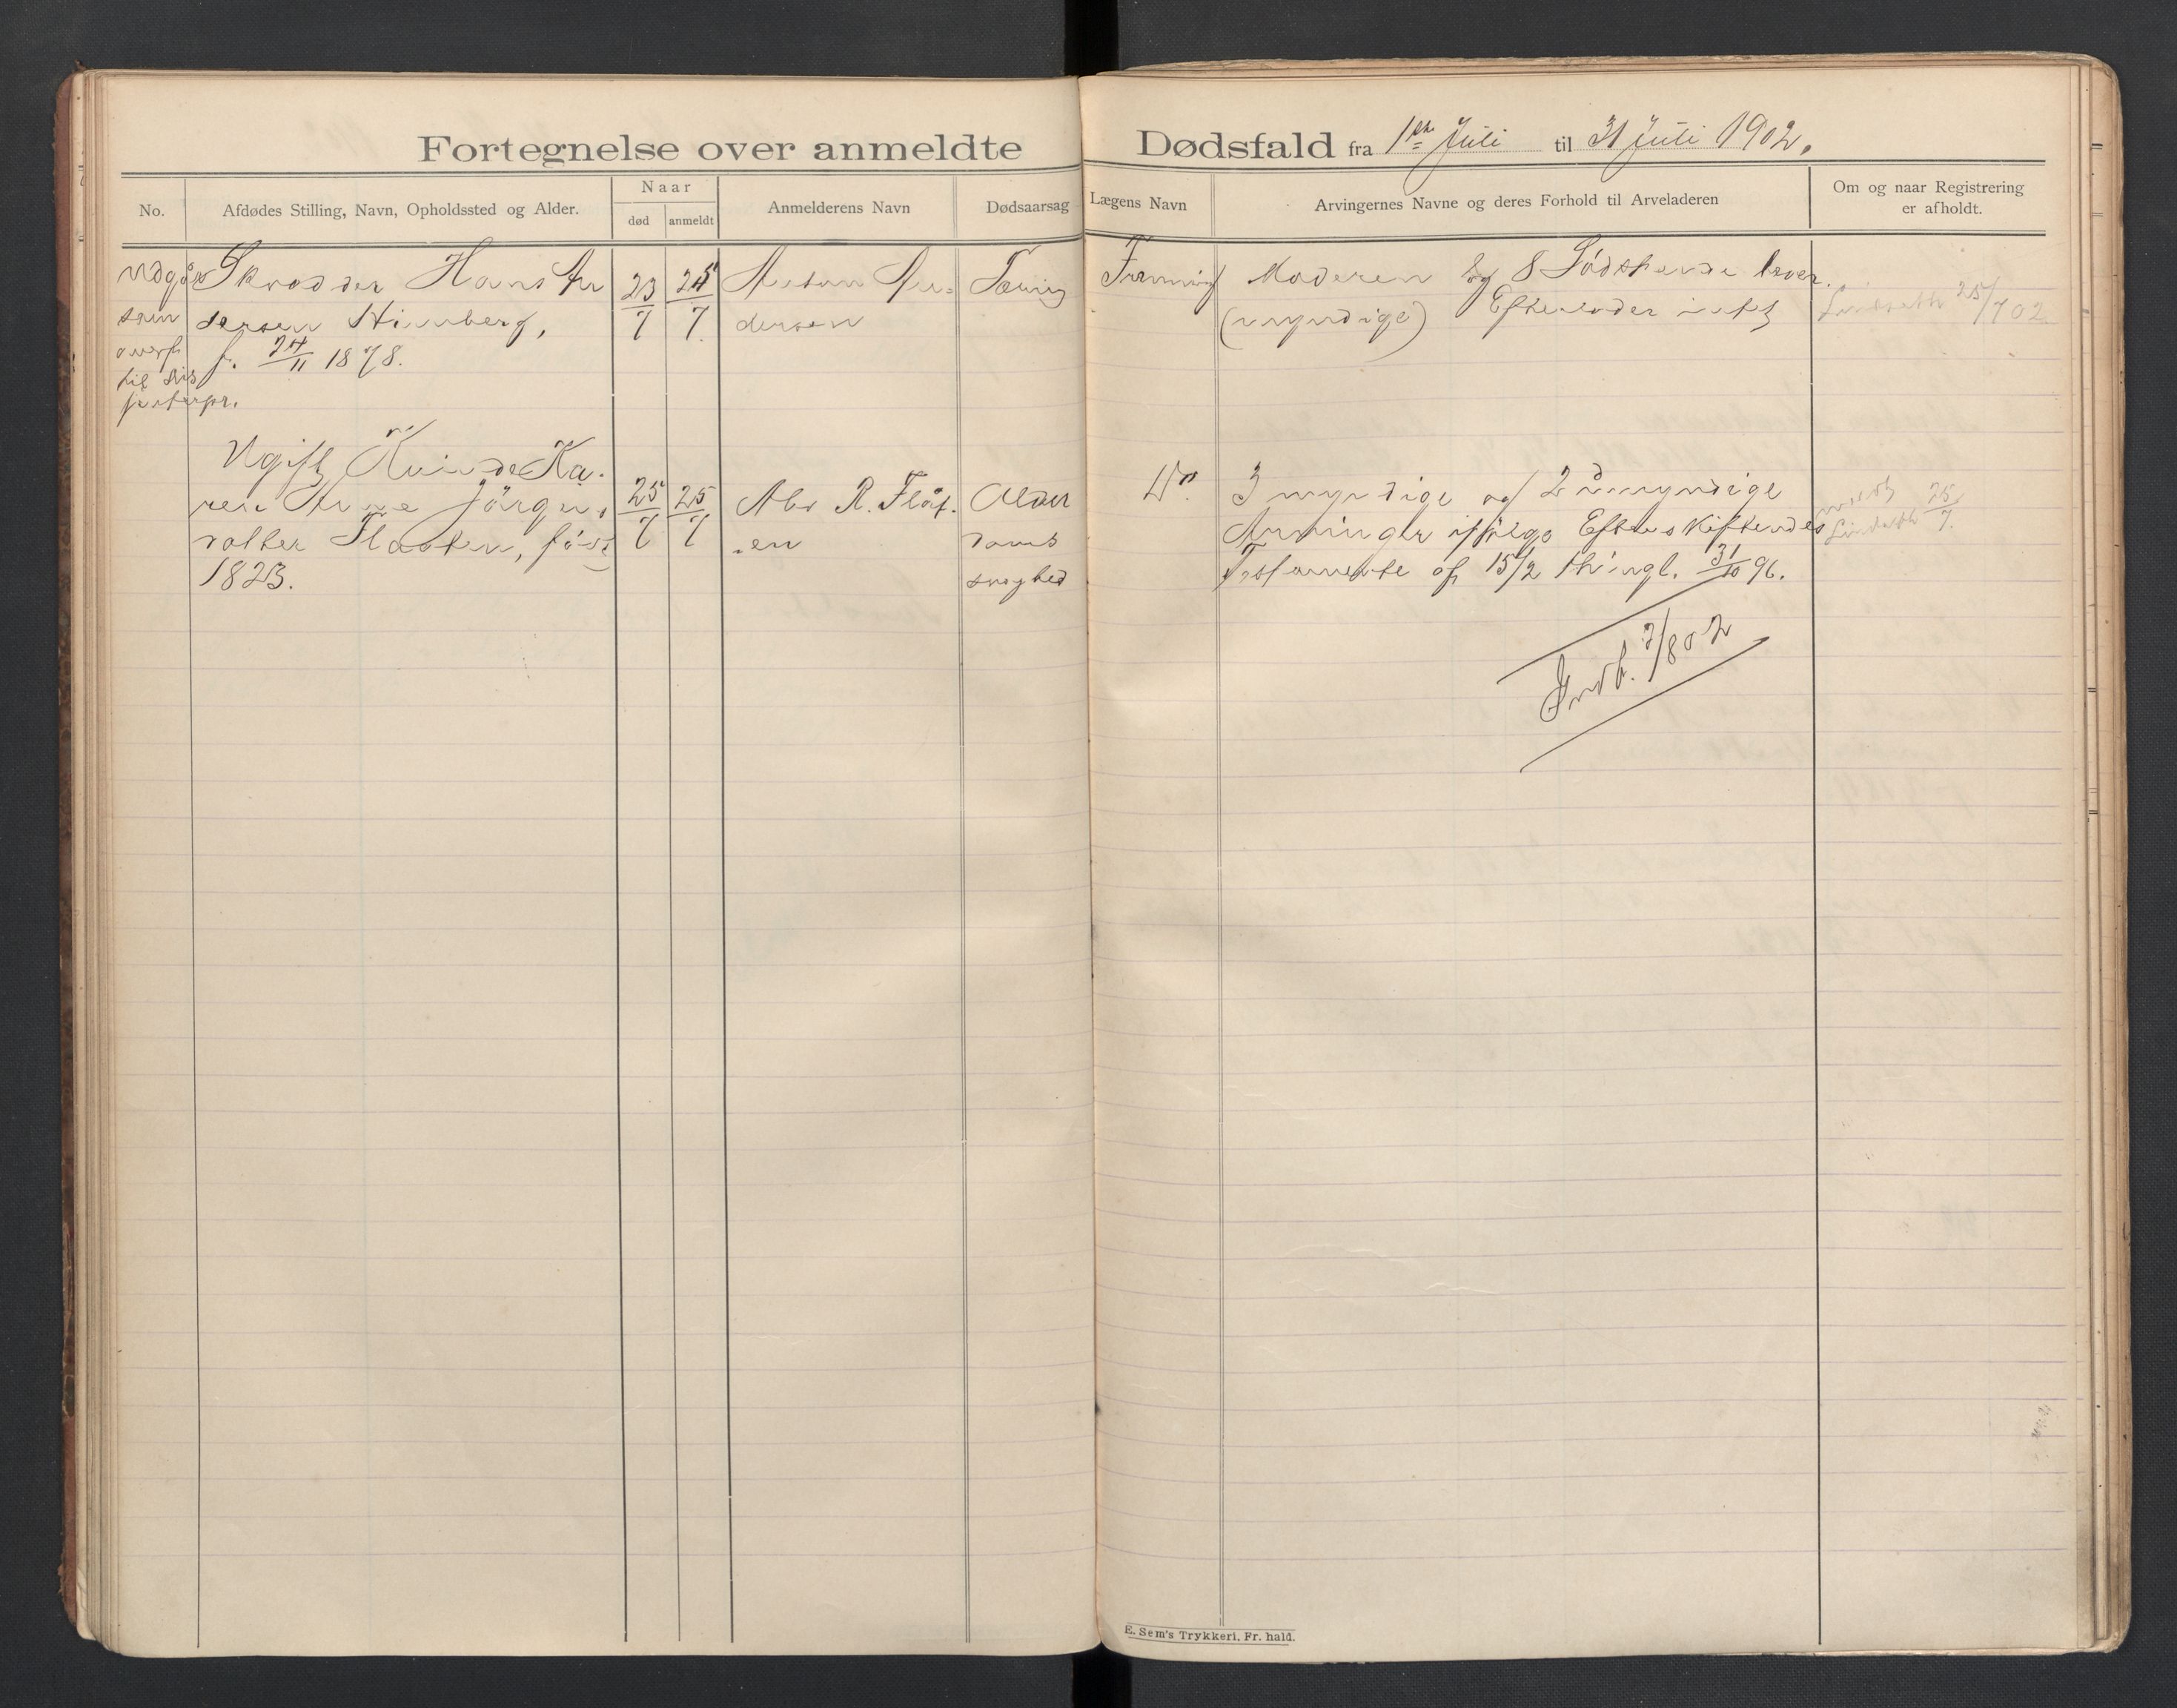 Fortegnelse over anmeldte Dødsfald fra 1ste Juli til 31 Juli 1902.
No.
Afdødes Stilling, Navn, Opholdssted og Alder.
Naar
død
anmeldt
Anmelderens Navn
Dødsaarsag
Lægens Navn
Arvingernes Navne og deres Forhold til Arveladeren
Om og naar Registrering
er afholdt.
Udgår
som
overf.
til
Skrædder Hans An
dersen Himberg,
f. 24/11 1878.
23/7
25/7
Anton An-
dersen
Tæring
Moderen og 8 Södskende lever.
(umyndige) Efterlader intet
Lindseth 25/7 02
Ugift Kvinde Ka-
ren Anne Jörgens
datter Flaaten, född
1823.
25/7
25/7
Abr R. Flåt-
en
Alder
doms
svaghed
Do.
3 myndige og 2 umyndige
Arvinger ifölge Efterskiftendes
Testamente af 15/2 thingl. 31/10 96.
meldt 25/7.
Lindseth
Indb. 2/8 02
E. Sem's Trykkeri, Fr. hald.